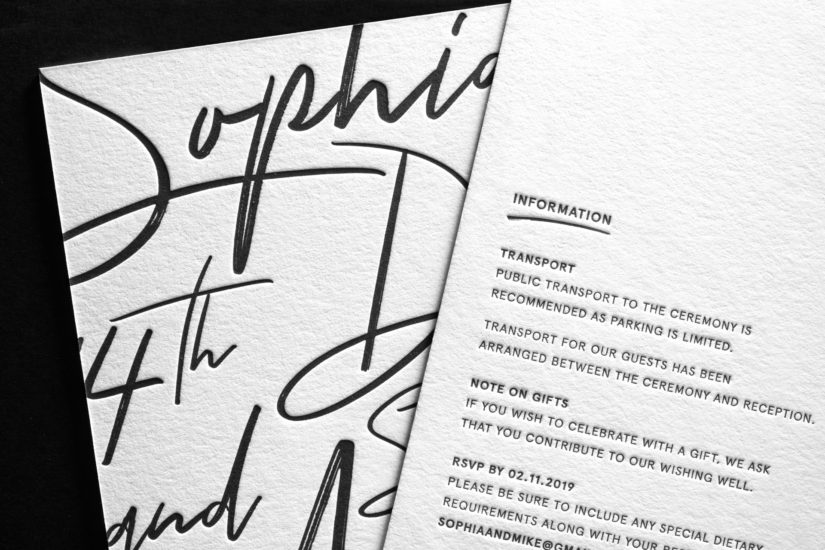 Sophia
4th
and
INFORMATION
TRANSPORT
PUBLIC TRANSPORT TO THE CEREMONY IS
RECOMMENDED AS PARKING IS LIMITED.
TRANSPORT FOR OUR GUESTS HAS BEEN
ARRANGED BETWEEN THE CEREMONY AND RECEPTION.
NOTE ON GIFTS
IF YOU WISH TO CELEBRATE WITH A GIFT, WE ASK
THAT YOU CONTRIBUTE TO OUR WISHING WELL.
RSVP BY 02.11.2019
PLEASE BE SURE TO INCLUDE ANY SPECIAL DIETARY
REQUIREMENTS ALONG WITH YOUR
SOPHIAANDMIKE@GMA